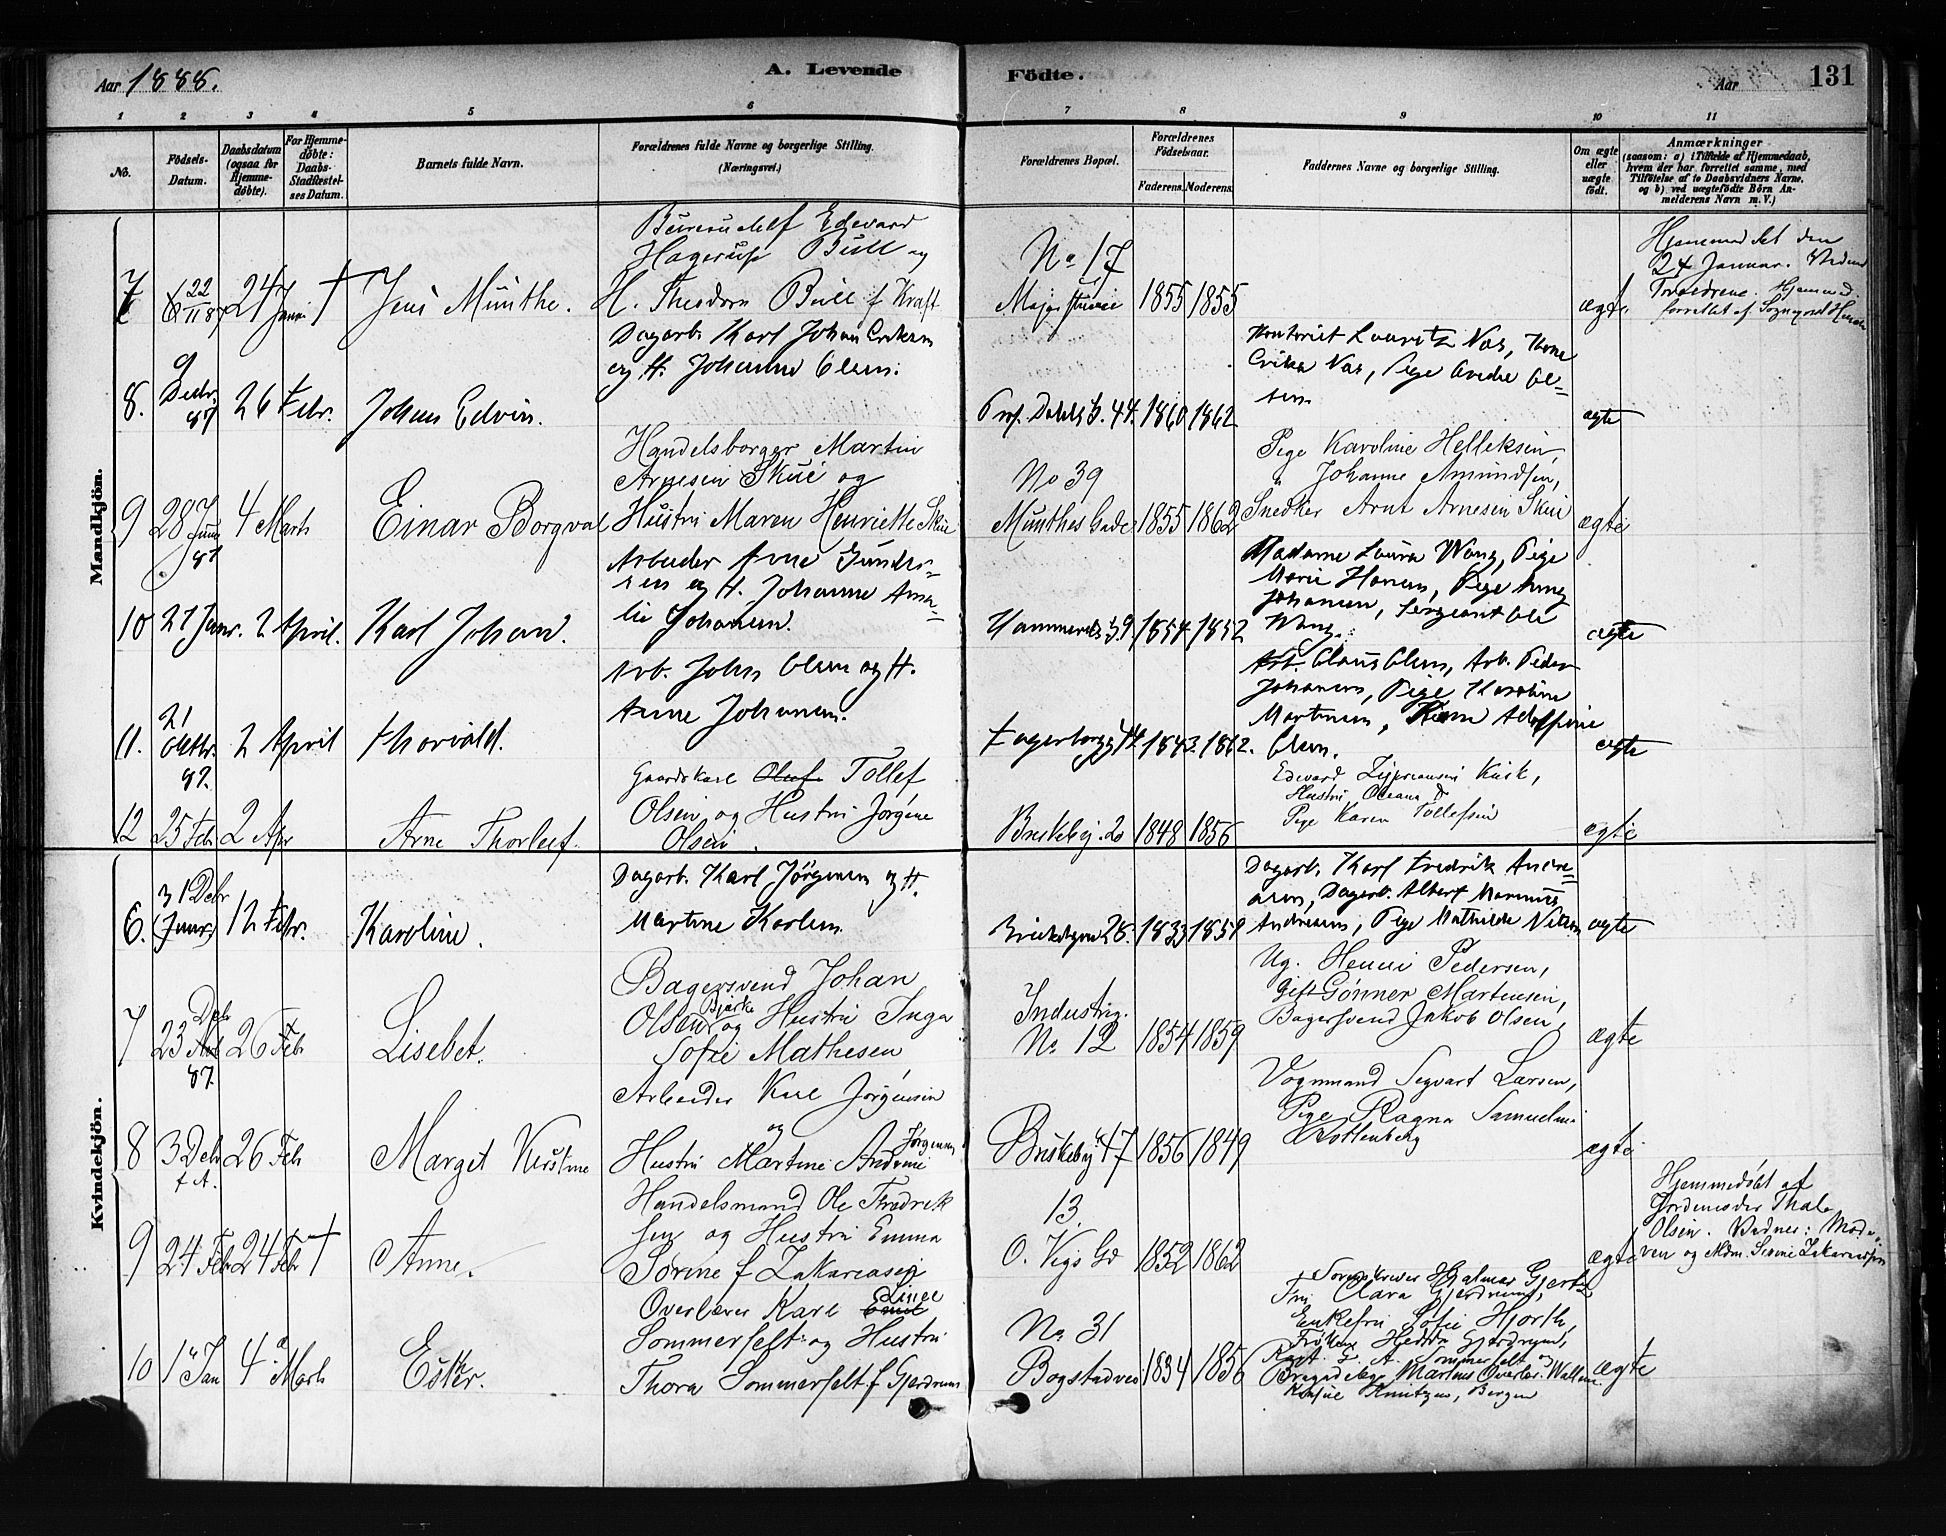 Aar 1888.
A. Levende
Födte.
Aar
131
1 2 3 4 5 6 7 8 9 10 11
No.
Födsels-
Datum.
Daabsdatum
(ogsaa for
Hjemme-
döbte).
For Hjemme-
döbte:
Daabs-
Stadfæstel-
ses Datum.
Barnets fulde Navn.
Forældrenes fulde Navne og borgerlige Stilling.
(Næringsvei.)
Forældrenes Bopæl.
Forældrenes
Födselsaar.
Faderens. Moderens.
Faddernes Navne og borgerlige Stilling.
Om ægte
eller
uægte
födt.
Anmærkninger
(saasom: a) i Tilfælde af Hjemmedaab,
hvem der har forrettet samme, med
Tilföielse af to Daabsvidners Navne,
og b) ved uægtefödte Börn An-
melderens Navn m. V.)
Mandkjön.
7
22
24 Janu †
Jens Munthe.
Edevard
Hagerup Bull og
H. Theodora Bull f Kraft
No 17
Majorstuveie
1855 1855
ægte
Hjemmedöbt den
24 Januar.
Forældrene. Hjemmed.
forrettet af
8.
9
Decbr.
87
26 Febr.
Johan Edvin.
Dagarb. Karl Johan Eriksen
og H. Johanne Olsen.
Prof. Dahls G. 44.
1860 1862
Kontorist Lauritz Næs,
Næs, Pige Ol-
sen
ægte
9
28
87
4 Marts
Einar Borgval
Handelsborger Martin
Arnesen Skui og
Hustru Maren Henriette Skui
No 39
Munthes Gade
1855 1862
Pige Karoline Helleksen,
Johanne Amundsen,
Snedker Arnt Arnesen Skui
ægte
10
27 Janr.
2 April.
Karl Johan.
Arbeider Arne Gunder-
sen og H. Johanne Ama-
lie Johansen.
9.
1854 1852
Madame Laura Wang, Pige
Marie Hansen, Pige
Johansen, Sergeant Ole
Wang.
ægte
11.
21
Oktbr.
87.
2 April
Thorvald.
Arb. Johan Olsen og H.
Anne Johansen.
1843. 1862.
Arb. Claus Olsen, Arb. Peder
Johansen, Pige Karoline
Martinsen, Adolfine
Olsen.
ægte
12
25 Feb
2 Apr
Arne Thorleif.
Gaardskarl Oluf Tollef
Olsen og Hustru Jørgine
Olsen.
Briskeby. 20
1848 1856
Edevard Kirk,
Hustru Oceana
Pige Karen Tollefsen
ægte
Kvindekjön.
6.
31 Debr
(Janr)
12 Febr.
Karoline.
Dagarb. Karl Jørgensen og H.
Martine Karlsen.
26.
1833 1859
Dagarb. Karl Fredrik Andre-
asen, Dagarb. Albert Marinius
Andreasen, Pige Mathilde Nilsen
ægte
7
23 Debr
87.
26 Feb
Lisebet.
Bagersvend Johan
Olsen Bjerke og Hustru Inga
Sofie Mathesen
Industrig.
No 12
1854 1859
Ug. Henri Pedersen,
gift Gønner Martensen,
Bagersvend Jakob Olsen,
ægte
8
3 Debr
f A.
26 Feb
Marget Kirstine
Arbeider Karl Jørgensen
og
Hustru Martine Andrine Jørgensen
Briskeby 47
1856 1849
Vognmand Segvart Larsen,
Pige Ragna Samueline
Rottenberg
ægte
9
24 Feb
24 Feb †
Anne.
Handelsmand Ole Fredrik
sen og Hustru Emma
Sørine f Zakariasen
13.
O. Vigs Gd
1852 1862
ægte
Hjemmedöbt af
Jordemoder Thale
Olsen. Vidner: Mode-
ren og Mdm. Serine Zakariassen
10
1 Jan
4 Marts
Ester.
Overlærer Karl Linee
Sommerfelt og Hustru
Thora Sommerfelt f Gjerdrum
No 31
Bogstadvei
1834 1856
Sorenskriver Hjalmar Gjertz
Fru Clara Gjerdrum,
Enkefru Sofie Hjorth,
Frøken Hedda Gjerdrum,
Kapt. G. A. Sommerfelt og
Bergen
ægte